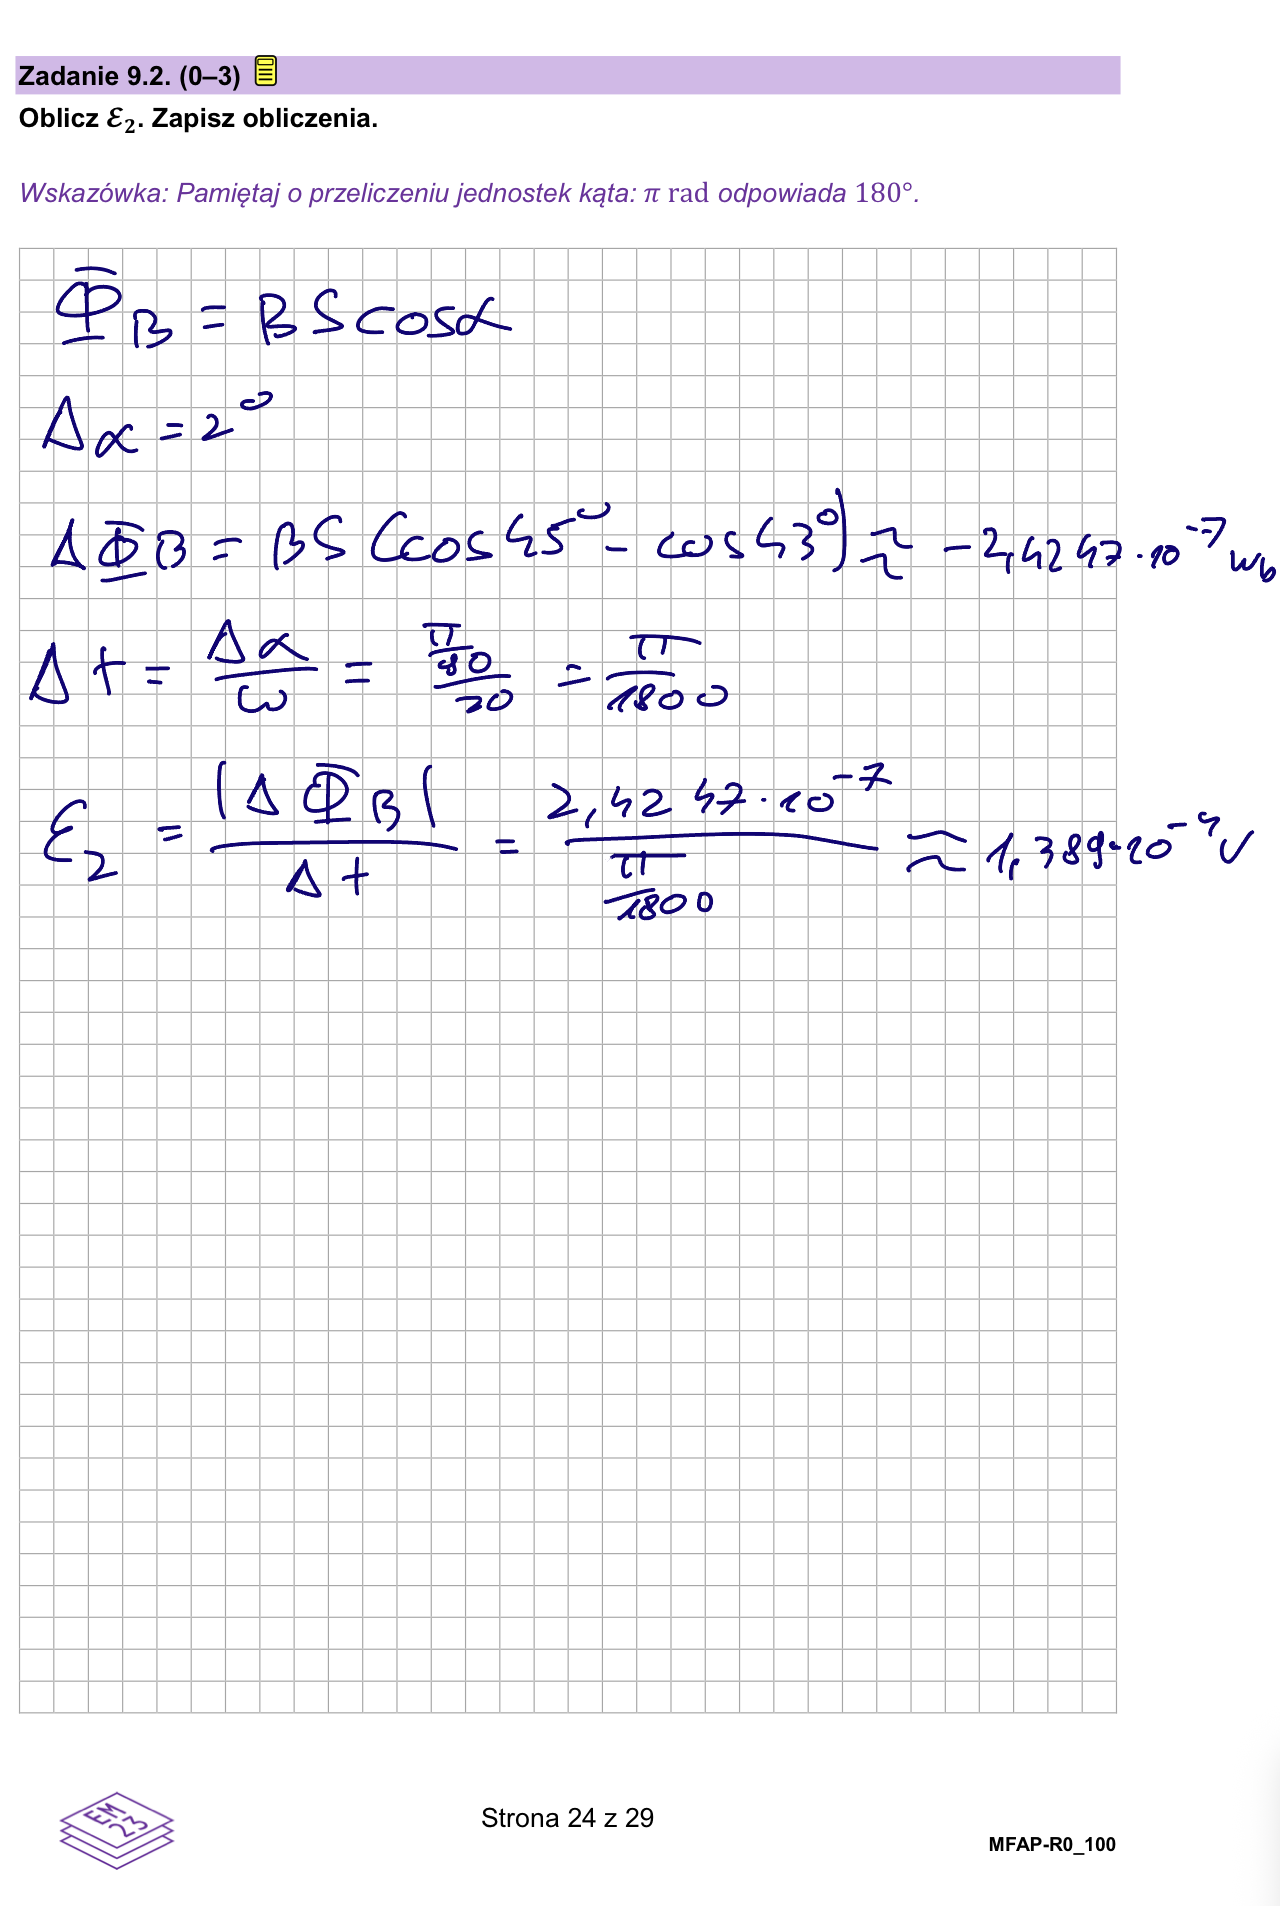 Zadanie 9.2. (0–3)
Oblicz ℰ₂. Zapisz obliczenia.
Wskazówka: Pamiętaj o przeliczeniu jednostek kąta: π rad odpowiada 180°.
Φ_B = B S cosα
Δα = 2°
ΔΦ_B = BS (cos45° - cos43°) ≈ -2,4247·10⁻⁷ Wb
Δt = Δα/ω = (π/90)/20 = π/1800
ℰ₂ = |ΔΦ_B|/Δt = 2,4247·10⁻⁷/(π/1800) ≈ 1,389·10⁻⁴ V
EM
23
Strona 24 z 29
MFAP-R0_100